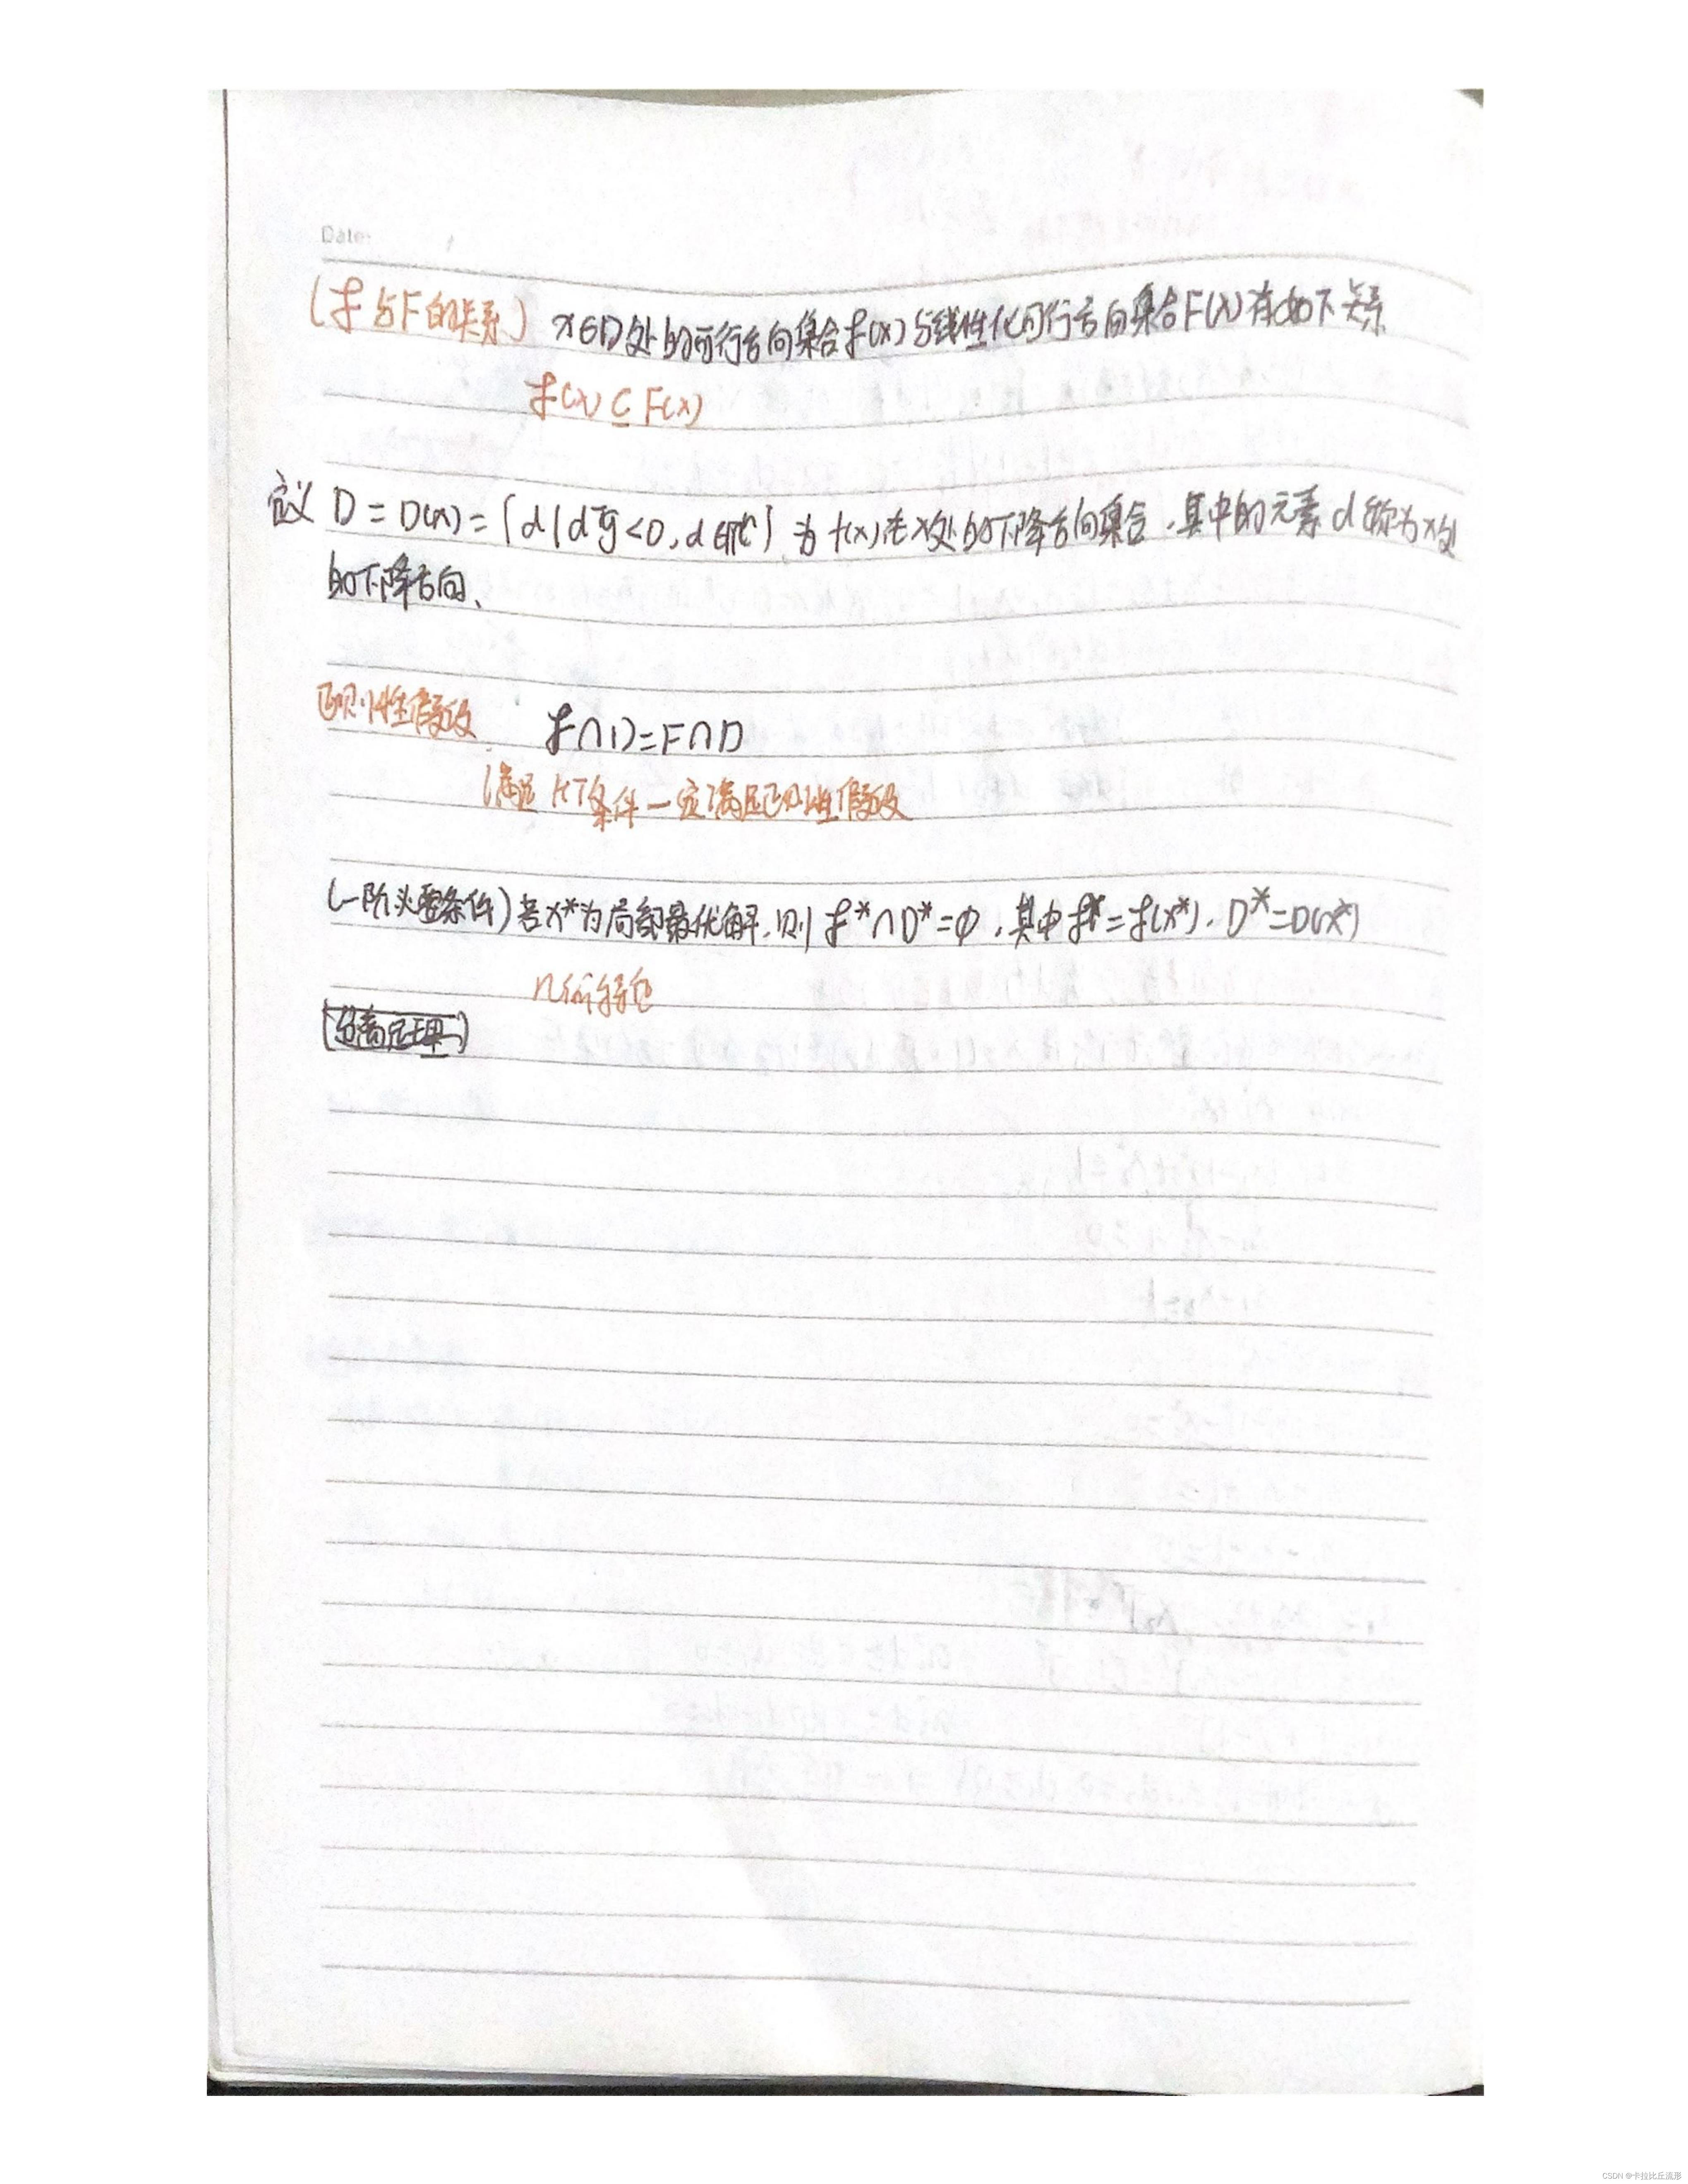 Date:
(ℱ与F的关系) x∈D处的可行方向集合ℱ(x)与线性化可行方向集合F(x)有如下关系
ℱ(x) ⊆ F(x)
定义 D = D(x) = {d | dᵀg < 0, d ∈ ℝⁿ} 为 f(x)在x处的下降方向集合,其中的元素d称为x处
的下降方向、
正则性假设 ℱ∩D=F∩D
(满足KT条件一定满足正则性假设
(一阶必要条件)若x*为局部最优解,则 ℱ*∩D*=∅,其中ℱ*=ℱ(x*),D*=D(x*)
几何特色
(分离定理)
CSDN @卡拉比丘流形